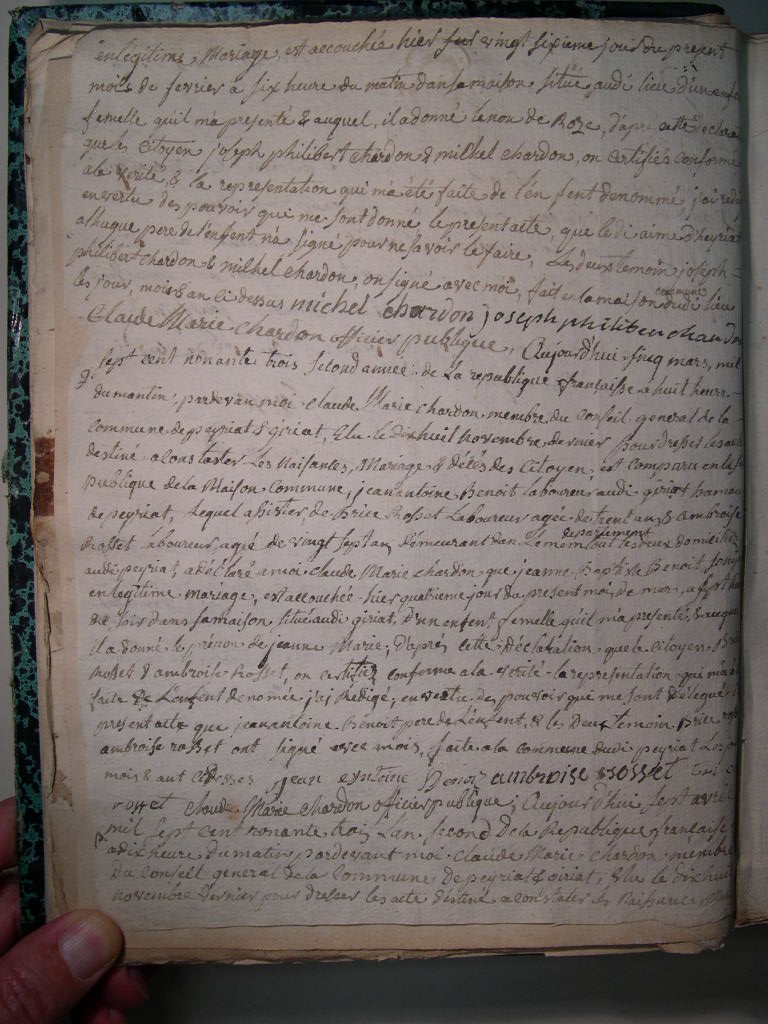 en légitime, Mariage, est accouchée hier sur vingt sixieme jour du present
mois de fevrier a six heure du matin dans sa maison situé audi lieu d'un enfen
femelle quil m'a presenté & auquel, il a donné le non de Roze, d'apré cette declara
que les Citoyen joseph philibert chardon & milhel chardon, on certifiés conforme
a la verité, & la representation qui m'a été faite de l'en fent denommé, j'ai redi
en vertu des pouvoir qui me sont donné, le present acte, que le di aime d'heyriat
alhuque pere de l'enfent n'a signé pour ne savoir le faire, Les deux temoin joseph
philibert chardon & milhel chardon, on signé avec moi, fait en la maison commune dudi lieu
les jour, mois & an ci dessus michel chardon joseph philiber chardon
Claude Marie chardon officier publique, Aujourd'hui sinq mars, mil
9. sept cent nonante trois second année de La republique française a huit heure
du mantin, pardevan moi Claude Marie chardon membre du Conseil general de la
Commune de peyriat & giriat, Elu le dixhuit novembre dernier pour dresser les acte
destiné a constaster Les Naisantes, Mariage & délés des Citoyen est comparu en la sa
publique de la Maison Commune, jean antoine Benoit laboureur audi giriat hameau
de peyriat, Lequel assister de Brice Rosset Laboureur agée de trent an, & ambroise
Rosset laboureur, agée de vingt sept an, démeurant dan Le mem departement tout les deux domicilié
audi peyriat, a déclaré a moi Claude Marie chardon que jeanne Baptiste Benoit, son
en legitime mariage, est accouchée hier quatrieme jour du present moi, de mar, a sept heu
du soir dans sa maison situé audi giriat, d'un enfent femelle qu'il m'a presenté, & auque
il a donné le prénom de jeanne Marie, d'apré, cette déclaration que le Citoyen Bri
Rosset & ambroise Rosset, on certifiez conforme a la verité la representation qui m'a é
faite de L'enfent denomée j'ai Redigé, en vertu des pouvoir qui me sont délegué l
present acte que jean antoine Benoit pere de L'enfent, & les Deux temoin Brice ross
ambroise rosset ont signé avec mois, faite a la commune dudi peyriat Les j
mois & ant ci desses jean entoine Benoit ambroise rosset brice
rosset Claude Marie chardon officier publique; Aujourd'hui sept avril
mil sept cent nonante troi, L'an second De la Republique française
a dix heure du matin pardevant moi Claude Marie chardon membre
du conseil general de la Commune De peyriat & giriat, Elu le dix huit
novembre dernier pour dresser les acte destiné a constater les Naissance,